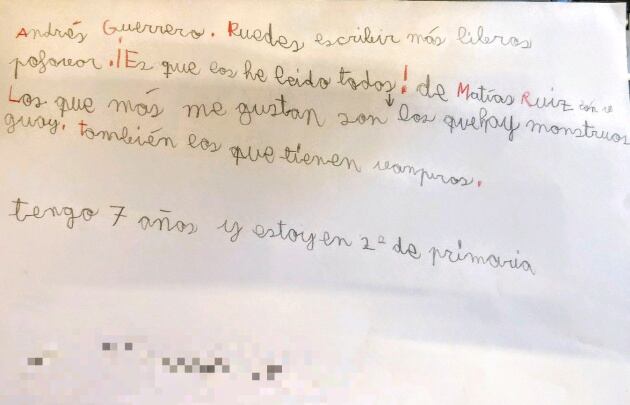 Andrés Guerrero. Puedes escribir más libros
pofaror. ¡Es que los he leido todos! de Matías Ruiz
Los que más me gustan son los quehay monstruos
guay. también los que tienen vanpiros.
tengo 7 años y estoy en 2º de primaria